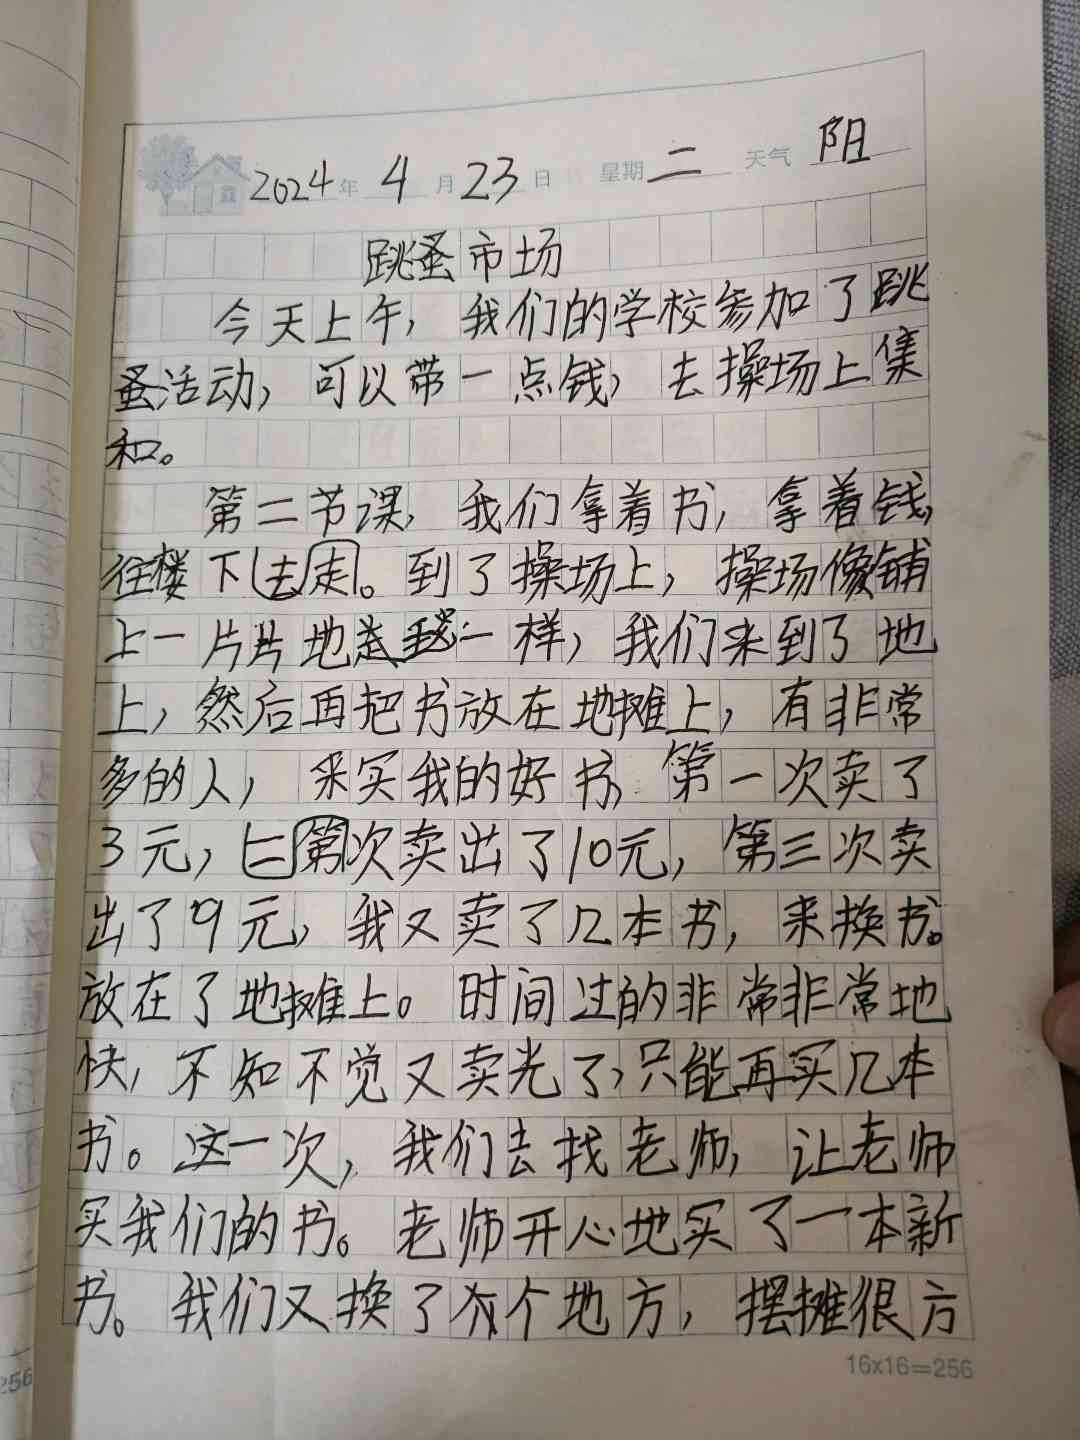 2024年4月23日 星期二 天气阴
跳蚤市场
今天上午，我们的学校参加了跳
蚤活动，可以带一点钱，去操场上集
和。
第二节课，我们拿着书，拿着钱，
往楼下去走。到了操场上，操场像铺
上一片片地毯一样，我们来到了地
上，然后再把书放在地摊上，有非常
多的人，来买我的好书，第一次卖了
3元，二第次卖出了10元，第三次卖
出了9元，我又卖了几本书，来换书。
放在了地摊上。时间过的非常非常地
快，不知不觉又卖光了，只能再买几本
书。这一次，我们去找老师，让老师
买我们的书。老师开心地买了一本新
书。我们又换了个地方，摆摊很方
16x16=256
256